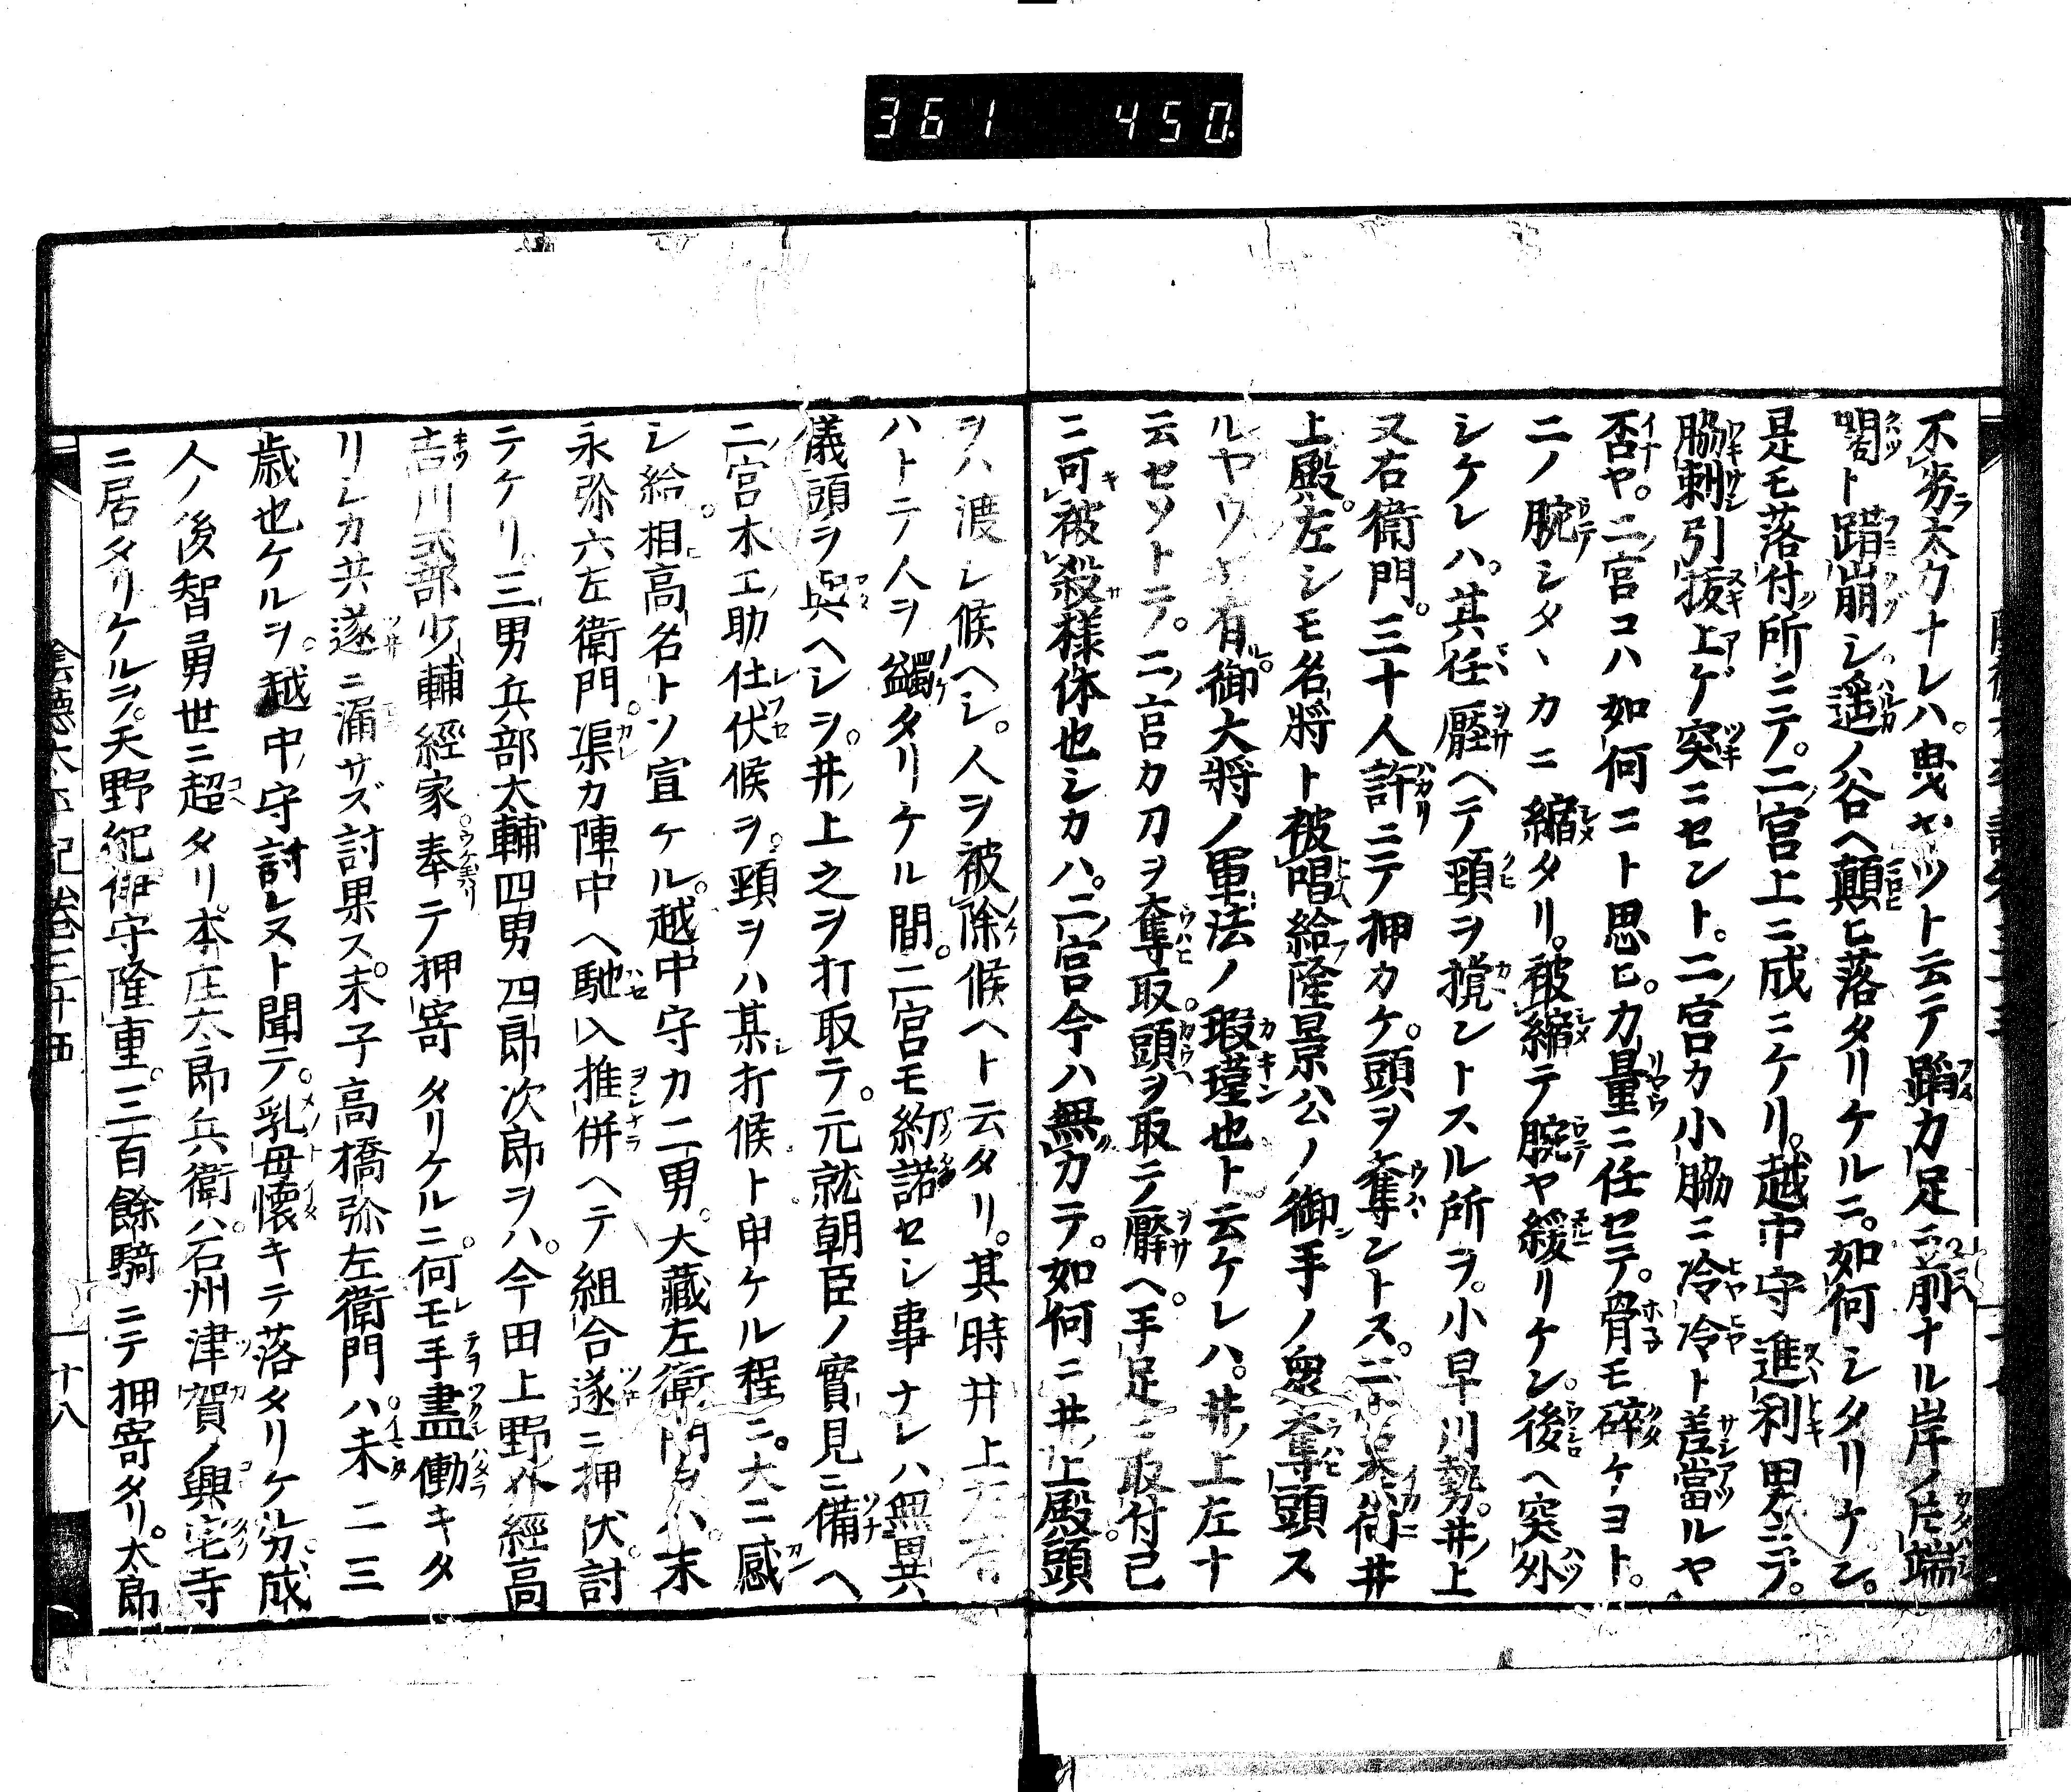 361 450.
不劣太力ナレハ。曳ヤツト云テ蹈力足ニ前ナル岸ノ片端
閣ト蹈崩シ遥ノ谷ヘ顛ヒ落タリケルニ。如何シタリケン。
是モ落付所ニテ。二宮上ニ成ニケリ。越中守進利男ニテ。
脇刺引抜上ケ突ニセント。二宮カ小脇ニ冷冷ト差當ルヤ
否ヤ。二宮コハ如何ニト思ヒ。力量ニ任セテ。骨モ碎ケヨト。
二ノ腕シタヽカニ縮タリ。被縮テ腕ヤ緩リケン。後ヘ突外
シケレハ。其任壓ヘテ頸ヲ掻ントスル所ヲ。小早川勢。井上
又右衛門。三十人許ニテ押カケ。頭ヲ奪ントス。二宮 如何井
上殿。左シモ名將ト被唱給フ隆景公ノ御手ノ衆奪頭ス
ルヤウヤ有。御大將ノ軍法ノ瑕瑾也ト云ケレハ。井上左ナ
云セソトテ。二宮カ刀ヲ奪取。頭ヲ取ニノ壓ヘ。手足ニ取付己
ニ可被殺様体也シカハ。二宮今ハ無力テ。如何ニ井上殿。頭
ヲハ渡シ候ヘシ。人ヲ被除候ヘト云タリ。其時井上
ハトテ人ヲ蠲タリケル間。二宮モ約諾セシ事ナレハ無異
儀頭ヲ與ヘシヲ。井上之ヲ打取テ。元就朝臣ノ實見ニ備ヘ
二宮木工助仕伏候ヲ。頸ヲハ某打候ト申ケル程ニ。大ニ感
シ給。相高名トソ宣ケル。越中守カ二男。大藏左衛門ヲハ。末
永弥六左衛門。渠カ陣中ヘ馳入推併ヘテ組合遂ニ押伏。討
テケリ。三男兵部太輔四男四郎次郎ヲハ。今田上野介經高
吉川式部少輔經家。奉テ押寄タリケルニ。何モ手盡働キタ
リシカ共遂ニ漏サズ討果ス。末子高橋弥左衛門ハ。未二三
歳也ケルヲ。越中守討レヌト聞テ。乳母懐キテ落タリケル力成
人ノ後智勇世ニ超タリ。本庄太郎兵衛ハ。石州津賀ノ興宅寺
ニ居タリケルヲ。天野紀伊守隆重。三百餘騎ニテ押寄タリ。太郎
陰徳太平記卷三十五
十八